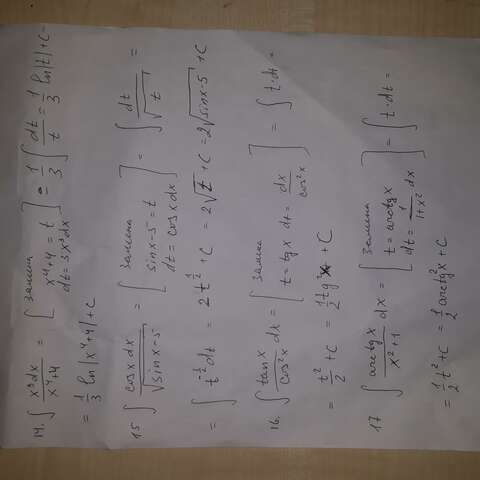 14. ∫ x³dx / x⁴+4 = [замена x⁴+4=t dt=3x³dx] = 1/3 ∫ dt/t = 1/3 ln|t|+C=
= 1/3 ln|x⁴+4|+C
15 ∫ cosx dx / √sinx-5 = [замена sinx-5=t dt=cosxdx] = ∫ dt/√t =
= ∫ t^(-1/2) dt = 2t^(1/2) + C = 2√t + C = 2√sinx-5 + C
16. ∫ tanx / cos²x dx = [замена t=tgx dt= dx/cos²x] = ∫ t·dt=
= t²/2 + C = 1/2 tg²x + C
17 ∫ arctgx / x²+1 dx = [замена t=arctgx dt= 1/1+x² dx] = ∫ t·dt=
= 1/2 t²+C = 1/2 arctg²x + C